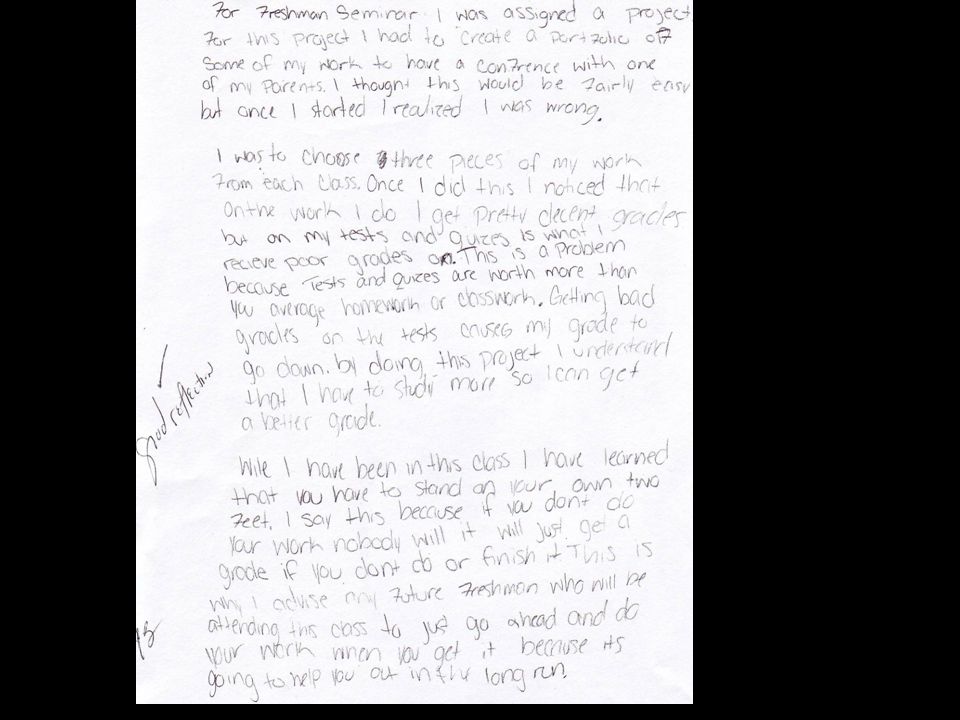 For Freshman Seminar I was assigned a project.
For this project I had to create a portfolio of
Some of my work to have a confrence with one
of my parents. I thought this would be fairly easy
but once I started I realized I was wrong.
I was to choose three pieces of my work
from each class. Once I did this I noticed that
On the work I do I get pretty decent grades
but on my tests and quizes is what I
recieve poor grades on. This is a problem
because Tests and quizes are worth more than
you average homework or classwork. Getting bad
grades on the tests causes my grade to
go down. by doing this project I understand
that I have to study more so I can get
a better grade.
good reflection
Wile I have been in this class I have learned
that you have to stand on your own two
feet. I say this because if you dont do
your work nobody will it will just get a
grade if you dont do or finish it This is
why I advise any future freshman who will be
attending this class to just go ahead and do
your work when you get it because its
going to help you out in the long run.